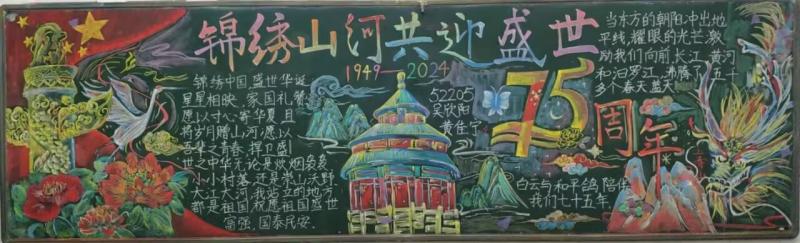 锦绣山河共迎盛世
1949—2024
锦绣中国盛世华诞
星星相映,家国礼赞
愿以寸心,寄华夏,且
将岁月赠山河,愿以
吾辈之青春,捍卫盛
世之中华,无论是炊烟袅袅
小小村落,还是崇山沃野
大江大河,我站立的地方
都是祖国,我愿祖国盛世
富强,国泰民安。
52205
吴欣阳
黄佳
75
周年
当东方的朝阳,冲出地
平线,耀眼的光芒,激
励我们向前,长江,黄河
和汨罗江,沸腾了,五十
多个春天,蓝天
白云与和平鸽,陪伴
我们七十五年